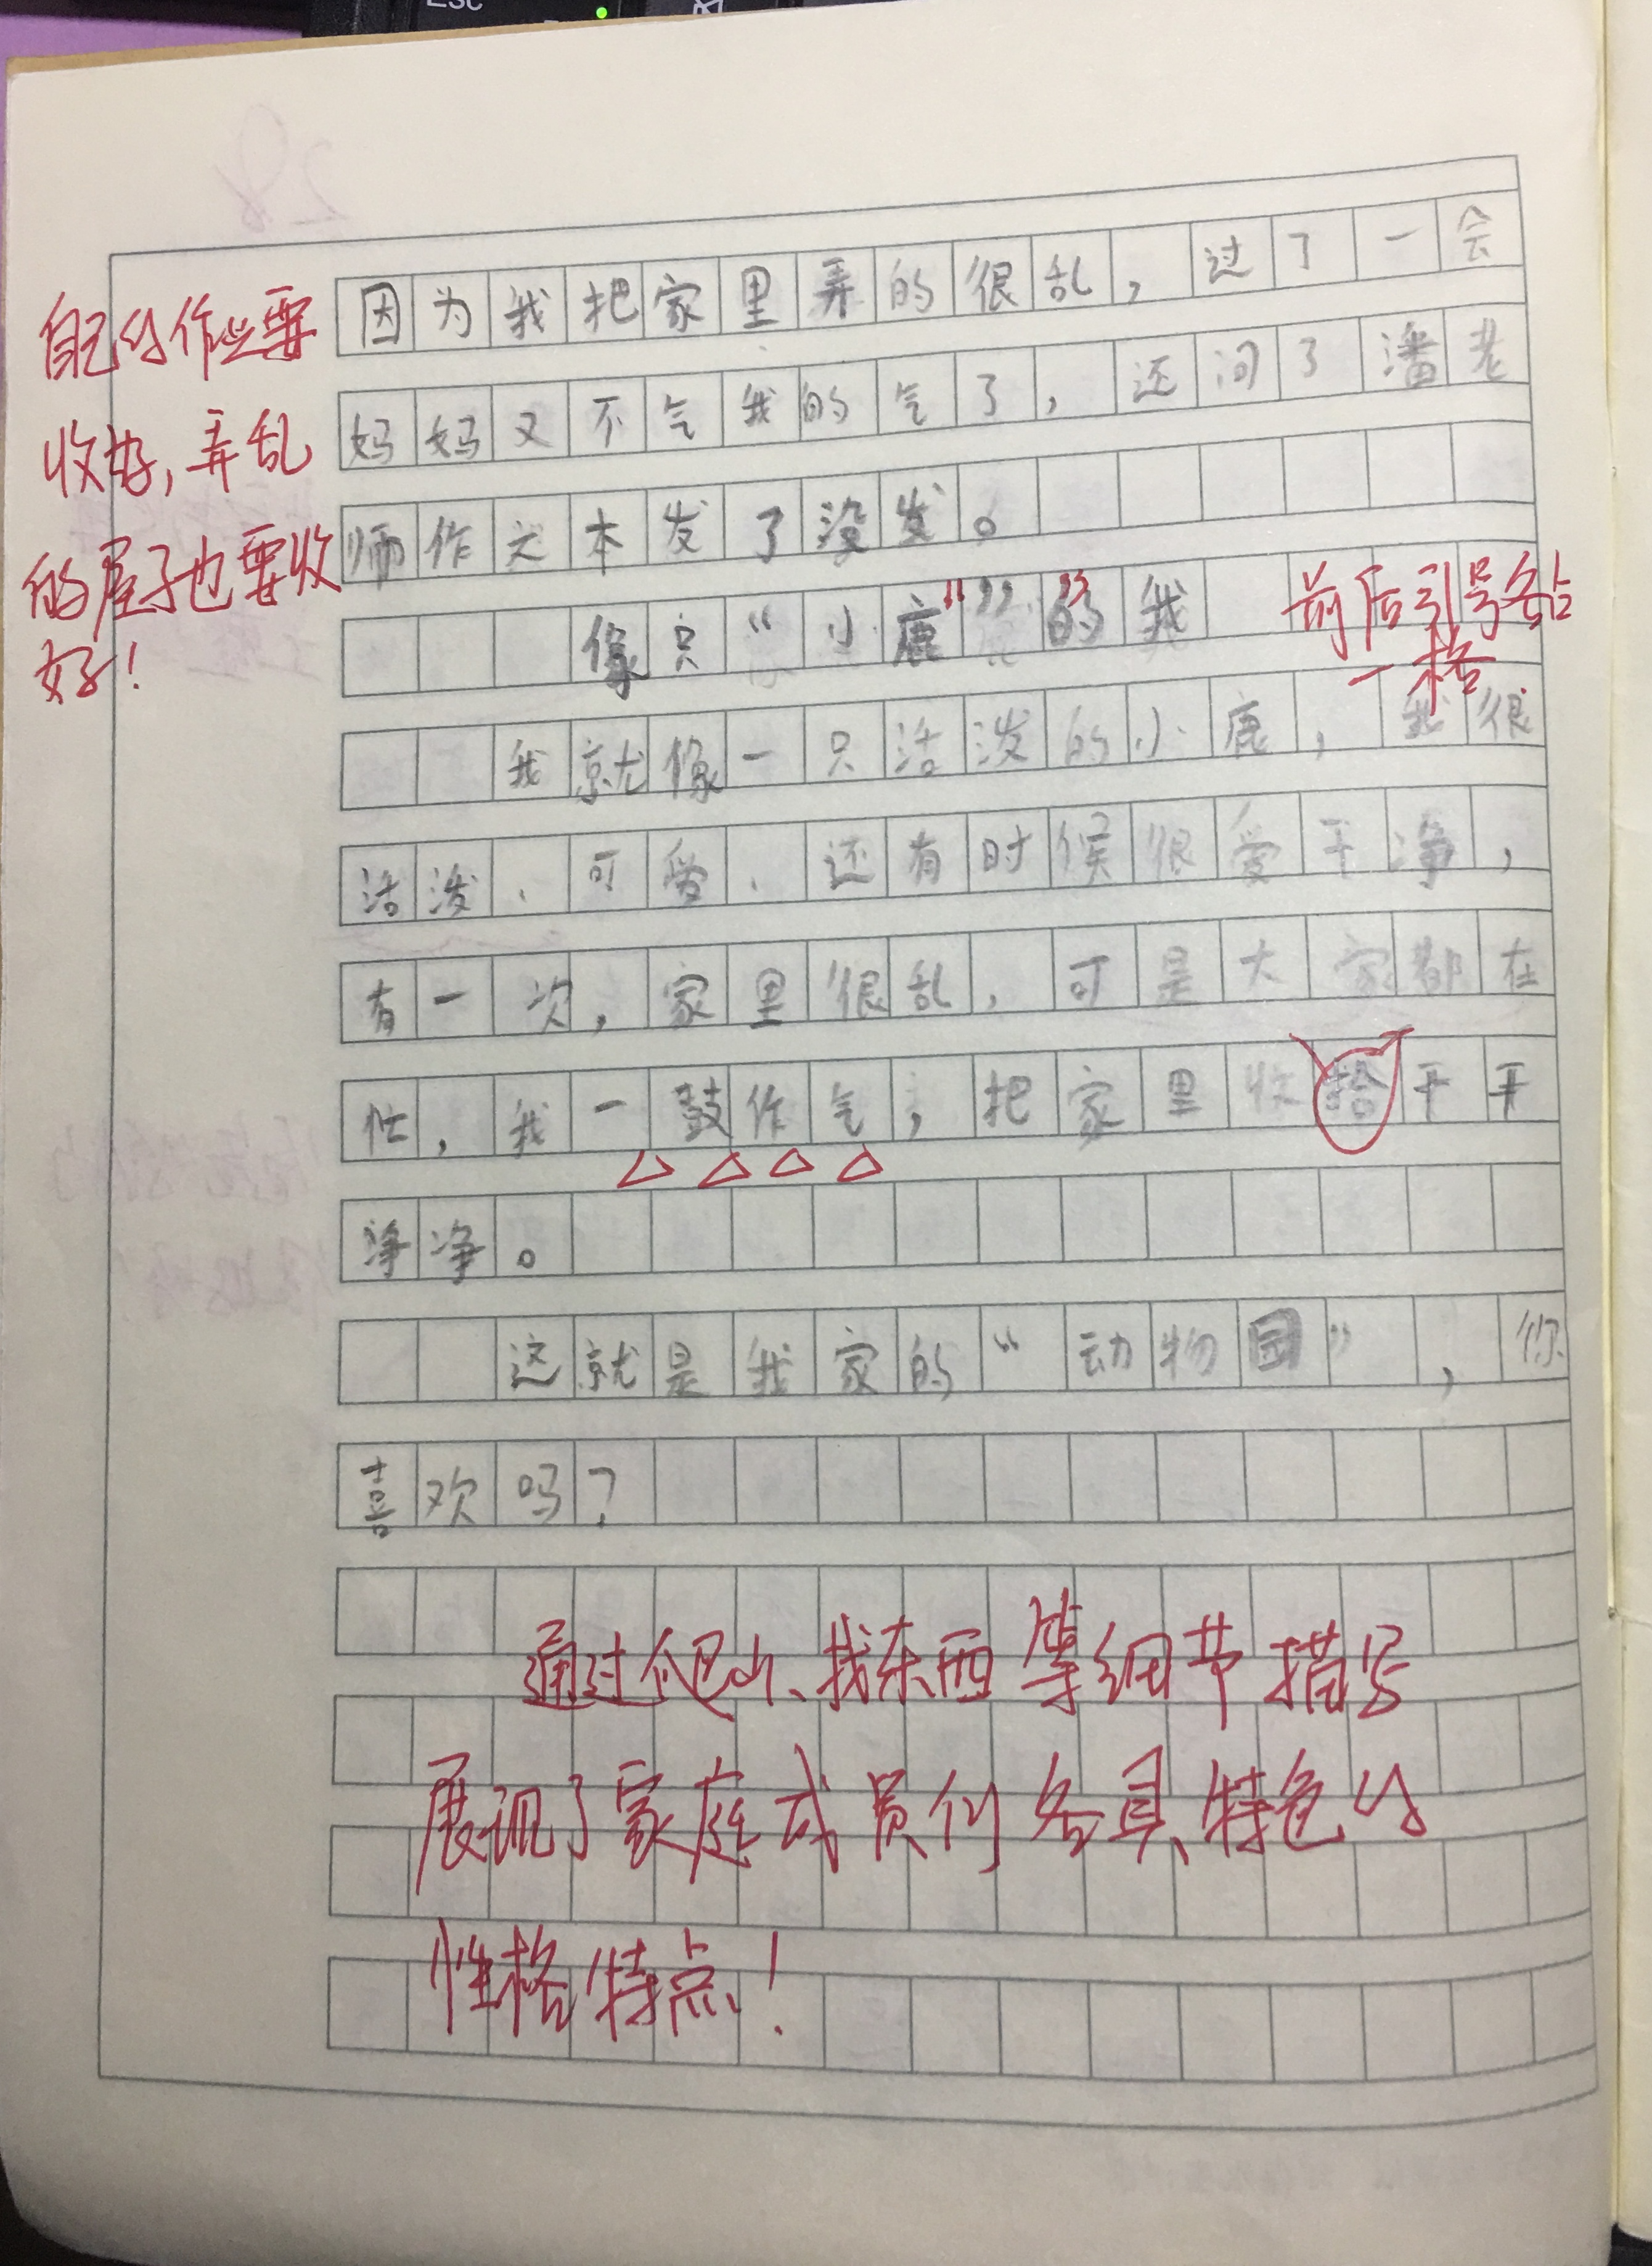 Esc
自己的作业要
收好，弄乱
的屋子也要收
好！
因为我把家里弄的很乱，过了一会
妈妈又不气我的气了，还问了潘老
师作文本发了没发。
像只“小鹿”的我
前后引号各占
一格
我就像一只活泼的小鹿，我很
活泼、可爱、还有时候很爱干净，
有一次，家里很乱，可是大家都在
忙，我一鼓作气，把家里收拾干干
净净。
这就是我家的“动物园”，你
喜欢吗？
通过爬山、找东西等细节描写
展现了家庭成员们各具特色的
性格特点！